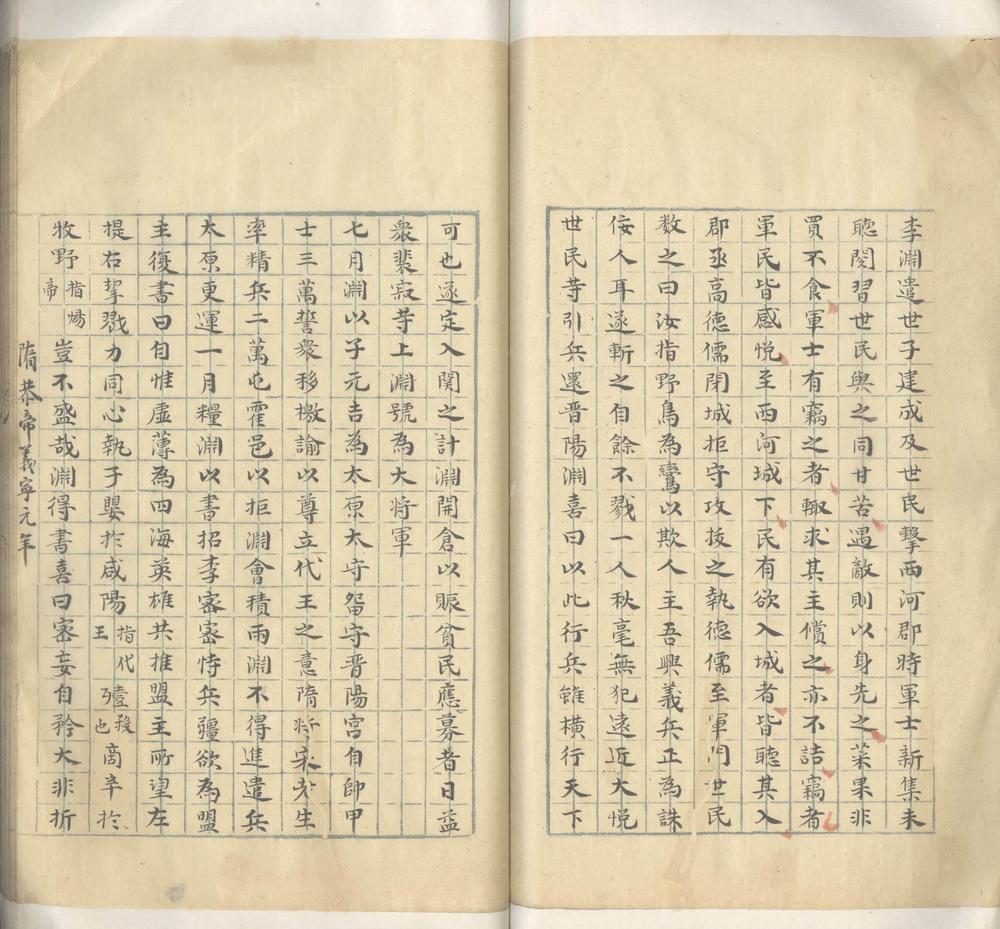 李淵遣世子建成及世民擊西河郡時軍士新集未
聽閱習世民與之同甘苦遇敵則以身先之菜果非
買不食軍士有竊之者輒求其主償之亦不詰竊者
軍民皆感悅至西河城下民有欲入城者皆聽其入
郡丞高德儒閉城拒守攻拔之執德儒至軍門世民
数之曰汝指野鳥為鸞以欺人主吾興義兵正為誅
佞人耳遂斬之自餘不戮一人秋毫無犯遠近大悅
世民等引兵還晋陽淵喜曰以此行兵雖橫行天下
可也遂定入関之計淵開倉以賑貧民應募者日益
衆裴寂等上淵號為大将軍
七月淵以子元吉為太原太守畱守晋陽宮自帥甲
士三萬誓衆移檄諭以尊立代王之意隋将宋老生
率精兵二萬屯霍邑以拒淵會積雨淵不得進遣兵
太原更運一月糧淵以書招李密密恃兵彊欲為盟
主復書曰自惟虛薄為四海英雄共推盟主所望左
提右挈戮力同心執子嬰扵咸陽指代王殪殺也商辛扵
牧野指煬帝豈不盛哉淵得書喜曰密妄自矜大非折
隋恭帝義寧元年